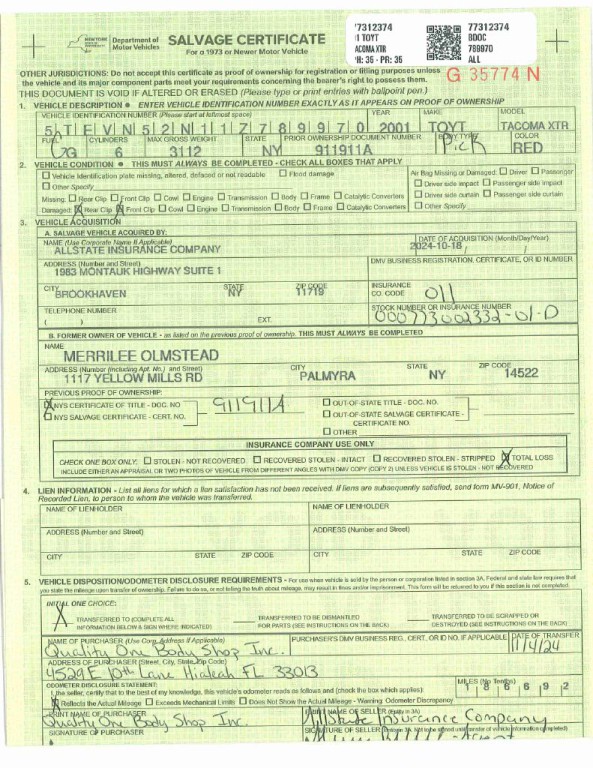 NEW YORK
Department of Motor Vehicles
SALVAGE CERTIFICATE
For a 1973 or Newer Motor Vehicle
77312374
BDOC
789970
ALL
TOYT
ACOMA XTR
35 - PR: 35
G 35774 N
OTHER JURISDICTIONS: Do not accept this certificate as proof of ownership for registration or titling purposes unless
the vehicle and its major component parts meet your requirements concerning the bearer's right to possess them.
THIS DOCUMENT IS VOID IF ALTERED OR ERASED (Please type or print entries with ballpoint pen.)
1. VEHICLE DESCRIPTION ● ENTER VEHICLE IDENTIFICATION NUMBER EXACTLY AS IT APPEARS ON PROOF OF OWNERSHIP
VEHICLE IDENTIFICATION NUMBER (Please start at leftmost space) YEAR MAKE MODEL
5 T E V N 5 2 N 1 1 Z 7 8 9 9 7 0 2001 TOYT TACOMA XTR
FUEL CYLINDERS MAX GROSS WEIGHT STATE PRIOR OWNERSHIP DOCUMENT NUMBER BODY TYPE COLOR
6 3112 NY 911911A Pick RED
2. VEHICLE CONDITION ● THIS MUST ALWAYS BE COMPLETED - CHECK ALL BOXES THAT APPLY
Vehicle identification plate missing, altered, defaced or not readable Flood damage
Air Bag Missing or Damaged: Driver Passenger
Other Specify
Driver side impact Passenger side impact
Missing: Rear Clip Front Clip Cowl Engine Transmission Body Frame Catalytic Converters
Driver side curtain Passenger side curtain
Damaged: Rear Clip Front Clip Cowl Engine Transmission Body Frame Catalytic Converters
Other Specify
3. VEHICLE ACQUISITION
A. SALVAGE VEHICLE ACQUIRED BY:
NAME (Use Corporate Name If Applicable) DATE OF ACQUISITION (Month/Day/Year)
ALLSTATE INSURANCE COMPANY 2024-10-18
ADDRESS (Number and Street) DMV BUSINESS REGISTRATION, CERTIFICATE, OR ID NUMBER
1983 MONTAUK HIGHWAY SUITE 1
CITY STATE ZIP CODE INSURANCE CO. CODE 011
BROOKHAVEN NY 11719
TELEPHONE NUMBER STOCK NUMBER OR INSURANCE NUMBER
( ) EXT. 000773002332-01-D
B. FORMER OWNER OF VEHICLE - as listed on the previous proof of ownership. THIS MUST ALWAYS BE COMPLETED
NAME
MERRILEE OLMSTEAD
ADDRESS (Number (including Apt. No.) and Street) CITY STATE ZIP CODE
1117 YELLOW MILLS RD PALMYRA NY 14522
PREVIOUS PROOF OF OWNERSHIP:
NYS CERTIFICATE OF TITLE - DOC. NO. 911911A
NYS SALVAGE CERTIFICATE - CERT. NO.
OUT-OF-STATE TITLE - DOC. NO.
OUT-OF-STATE SALVAGE CERTIFICATE - CERTIFICATE NO.
OTHER
INSURANCE COMPANY USE ONLY
CHECK ONE BOX ONLY: STOLEN - NOT RECOVERED RECOVERED STOLEN - INTACT RECOVERED STOLEN - STRIPPED TOTAL LOSS
INCLUDE EITHER AN APPRAISAL OR TWO PHOTOS OF VEHICLE FROM DIFFERENT ANGLES WITH DMV COPY (COPY 2) UNLESS VEHICLE IS STOLEN - NOT RECOVERED
4. LIEN INFORMATION - List all liens for which a lien satisfaction has not been received. If liens are subsequently satisfied, send form MV-901, Notice of
Recorded Lien, to person to whom the vehicle was transferred.
NAME OF LIENHOLDER NAME OF LIENHOLDER
ADDRESS (Number and Street) ADDRESS (Number and Street)
CITY STATE ZIP CODE CITY STATE ZIP CODE
5. VEHICLE DISPOSITION/ODOMETER DISCLOSURE REQUIREMENTS - For use when vehicle is sold by the person or corporation listed in section 3A. Federal and state law requires that
you state the mileage upon transfer of ownership. Failure to do so, or not telling the truth about mileage, may result in fines and/or imprisonment. This form will be returned to you if this section is not completed.
INITIAL ONE CHOICE:
TRANSFERRED TO (COMPLETE ALL INFORMATION BELOW & SIGN WHERE INDICATED)
TRANSFERRED TO BE DISMANTLED FOR PARTS (SEE INSTRUCTIONS ON THE BACK)
TRANSFERRED TO BE SCRAPPED OR DESTROYED (SEE INSTRUCTIONS ON THE BACK)
NAME OF PURCHASER (Use Corp. Address if Applicable) PURCHASER'S DMV BUSINESS REG., CERT. OR ID NO. IF APPLICABLE DATE OF TRANSFER
Quality One Body Shop Inc. 11/4/24
ADDRESS OF PURCHASER (Street, City, State, Zip Code)
4529 E 10th Lane Hialeah FL 33013
ODOMETER DISCLOSURE STATEMENT: MILES (No Tenths)
I, the seller, certify that to the best of my knowledge, this vehicle's odometer reads as follows and (check the box which applies): 1 8 6 6 9 2
Reflects the Actual Mileage Exceeds Mechanical Limits Does Not Show the Actual Mileage - Warning Odometer Discrepancy
PRINT NAME OF PURCHASER PRINT NAME OF SELLER (Entity in 3A)
Quality One Body Shop Inc Allstate Insurance Company
SIGNATURE OF PURCHASER SIGNATURE OF SELLER